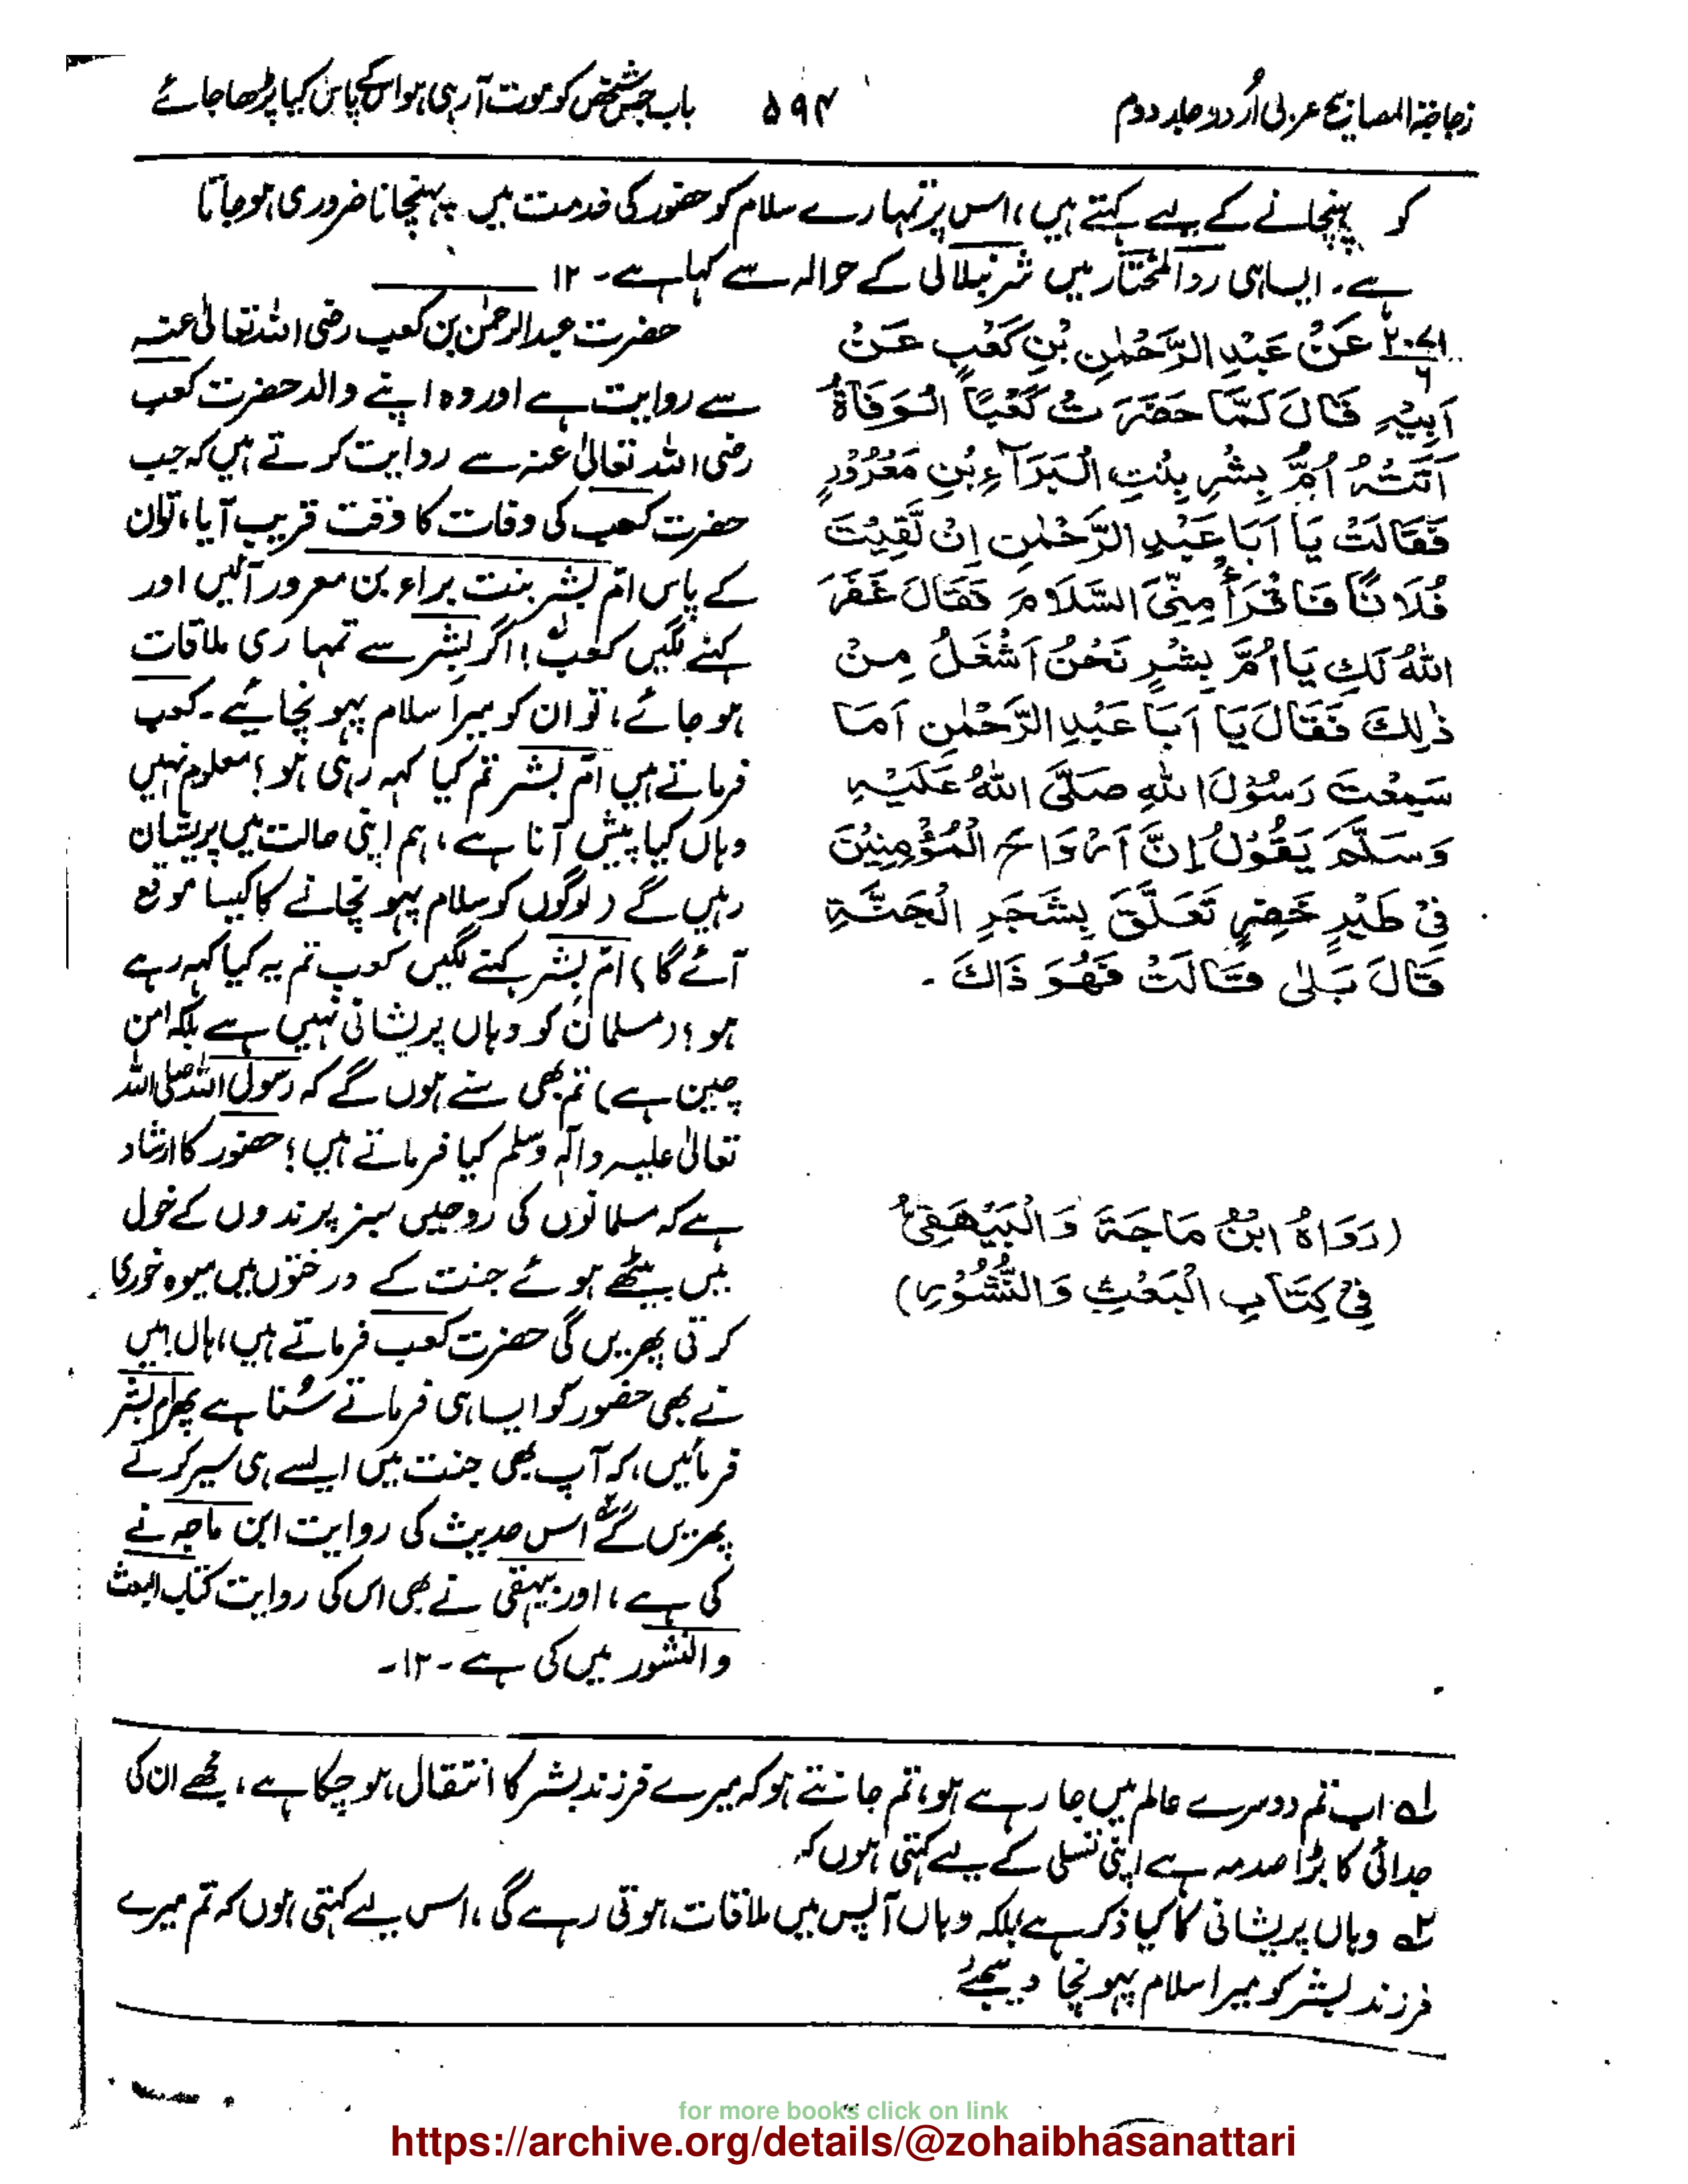 زجاجۃ المصابیح عربی اُردو جلد دوم
۵۹۴
باب جس شخص کو موت آ رہی ہو اس کے پاس کیا پڑھا جائے
کو پہنچانے کے لیے کہتے ہیں، اس پر تمہارے سلام کو حضور کی خدمت میں پہنچانا ضروری ہو جاتا
ہے۔ ایسا ہی ردالمحتار میں شرنبلالی کے حوالہ سے کہا ہے۔ ۱۲
۲۰۷۱/۶ عَنْ عَبْدِ الرَّحْمٰنِ بْنِ كَعْبٍ عَنْ
اَبِيْهِ قَالَ لَمَّا حَضَرَتْ كَعْبًا الْوَفَاةُ
اَتَتْهُ اُمُّ بِشْرٍ بِنْتِ الْبَرَآءِ بْنِ مَعْرُوْرٍ
فَقَالَتْ يَا اَبَا عَبْدِ الرَّحْمٰنِ اِنْ لَّقِيْتَ
فُلَانًا فَاقْرَأْ مِنِّىَ السَّلَامَ فَقَالَ غَفَرَ
اللهُ لَكِ يَا اُمَّ بِشْرٍ نَحْنُ اَشْغَلُ مِنْ
ذٰلِكَ فَقَالَ يَا اَبَا عَبْدِ الرَّحْمٰنِ اَمَا
سَمِعْتَ رَسُوْلَ اللهِ صَلَّى اللهُ عَلَيْهِ
وَسَلَّمَ يَقُوْلُ اِنَّ اَرْوَاحَ الْمُؤْمِنِيْنَ
فِيْ طَيْرٍ خَضِرٍ تَعَلَّقَ بِشَجَرِ الْجَنَّةِ
قَالَ بَلٰى قَالَتْ فَهُوَ ذَاكَ ۔
(رَوَاهُ ابْنُ مَاجَةَ وَالْبَيْهَقِيُّ
فِيْ كِتَابِ الْبَعْثِ وَالنُّشُوْرِ)
حضرت عبدالرحمٰن بن کعب رضی اللہ تعالیٰ عنہ
سے روایت ہے اور وہ اپنے والد حضرت کعب
رضی اللہ تعالیٰ عنہ سے روایت کرتے ہیں کہ جب
حضرت کعب کی وفات کا وقت قریب آیا، تو ان
کے پاس امّ بشر بنت براء بن معرور آئیں اور
کہنے لگیں کعب! اگر بشر سے تمہاری ملاقات
ہو جائے، تو ان کو میرا سلام پہونچائیے۔ کعب
فرماتے ہیں امّ بشر تم کیا کہہ رہی ہو؟ معلوم نہیں
وہاں کیا پیش آنا ہے، ہم اپنی حالت میں پریشان
رہیں گے (لوگوں کو سلام پہونچانے کا کیسا موقع
آئے گا) امّ بشر کہنے لگیں کعب تم یہ کیا کہہ رہے
ہو؟ (مسلمان کو وہاں پریشانی نہیں ہے بلکہ امن
چین ہے) تم بھی سنے ہوں گے کہ رسول اللہ صلی اللہ
تعالیٰ علیہ وآلہٖ وسلم کیا فرماتے ہیں؟ حضور کا ارشاد
ہے کہ مسلمانوں کی روحیں سبز پرندوں کے خول
میں بیٹھے ہوئے جنت کے درختوں میں میوہ خوری
کرتی پھریں گی حضرت کعب فرماتے ہیں، ہاں! میں
نے بھی حضور کو ایسا ہی فرماتے سُنا ہے پھر ام بشر
فرمائیں، کہ آپ بھی جنت میں ایسے ہی سیر کرتے
پھریں گے ۲ اس حدیث کی روایت ابن ماجہ نے
کی ہے، اور بیہقی نے بھی اس کی روایت کتاب البعث
والنشور میں کی ہے ۔۱۲۔
۱ اب تم دوسرے عالم میں جا رہے ہو، تم جانتے ہو کہ میرے فرزند بشر کا انتقال ہو چکا ہے، مجھے ان کی
جدائی کا بڑا صدمہ ہے اپنی تسلی کے لیے کہتی ہوں کہ
۲ وہاں پریشانی کا کیا ذکر ہے بلکہ وہاں آپس میں ملاقات ہوتی رہے گی، اس لیے کہتی ہوں کہ تم میرے
فرزند بشر کو میرا سلام پہونچا دیجئے
for more books click on link
https://archive.org/details/@zohaibhasanattari